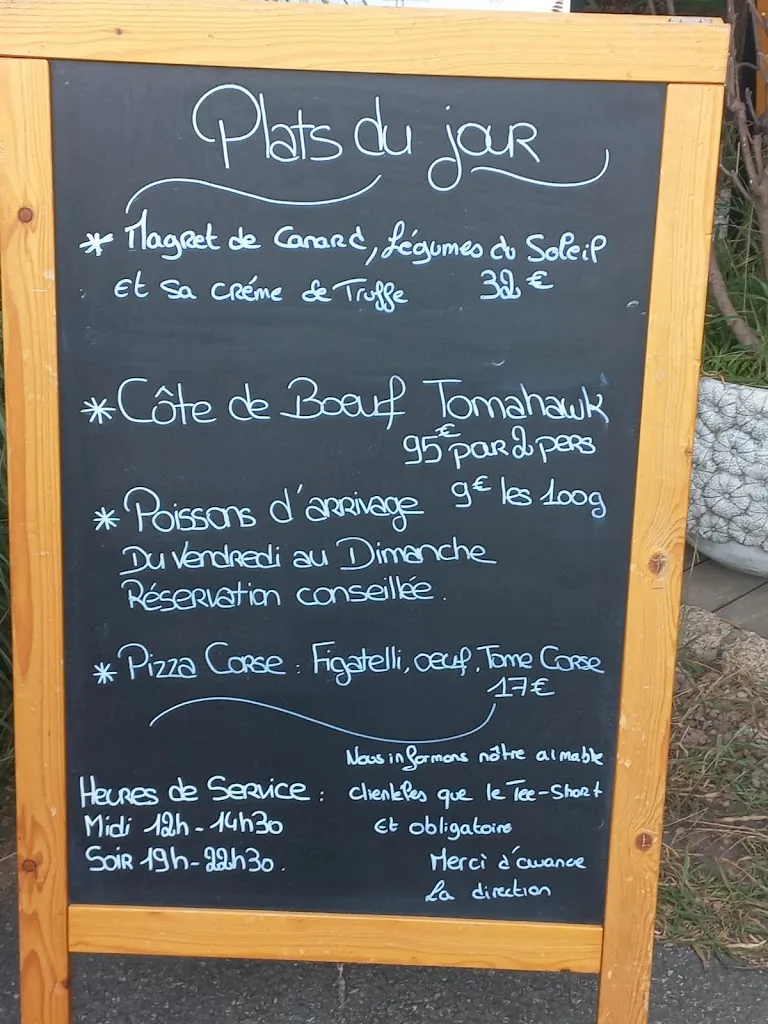 Plats du jour
* Magret de Canard, Légumes du Soleil
Et sa créme de Truffe 32 €
* Côte de Boeuf Tomahawk
95€ par 2 pers
* Poissons d'arrivage 9€ les 100g
Du Vendredi au Dimanche
Réservation conseillée.
* Pizza Corse : Figatelli, oeuf, Tome Corse
17€
Nous informons nôtre aimable
clientèles que le Tee-Short
Et obligatoire
Merci d'avance
La direction
Heures de Service :
Midi 12h-14h30
Soir 19h-22h30.